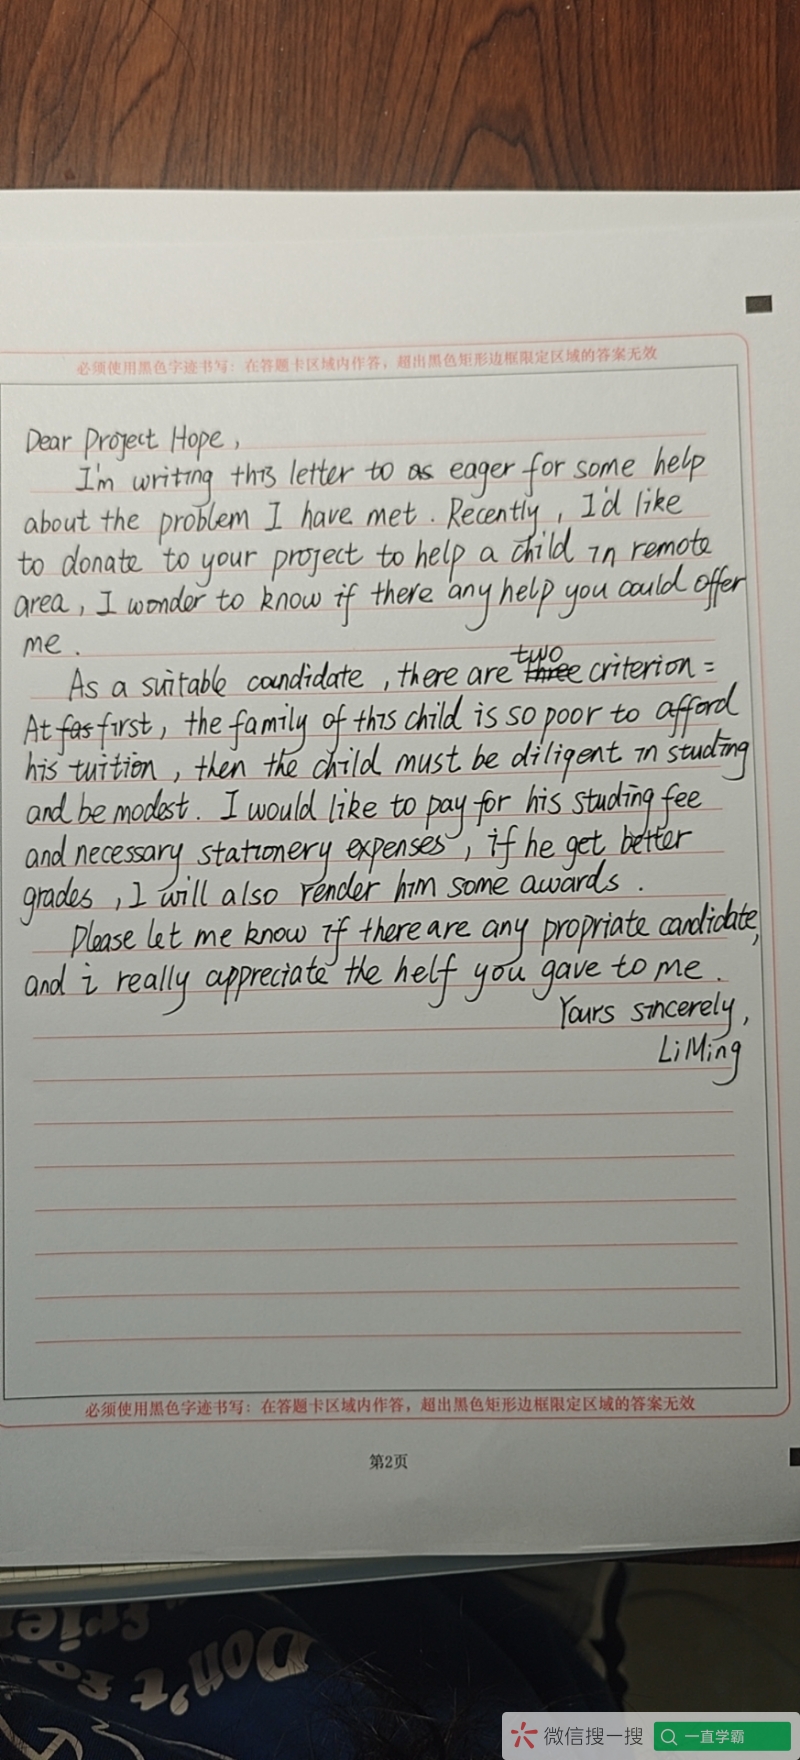 必须使用黑色字迹书写：在答题卡区域内作答，超出黑色矩形边框限定区域的答案无效
Dear Project Hope,
I'm writing this letter to as eager for some help
about the problem I have met. Recently, I'd like
to donate to your project to help a child in remote
area, I wonder to know if there any help you could offer
me.
As a suitable candidate, there are two three criterion:
At fas first, the family of this child is so poor to afford
his tuition, then the child must be diligent in studing
and be modest. I would like to pay for his studing fee
and necessary stationery expenses, if he get better
grades, I will also render him some awards.
Please let me know if there are any propriate candidate,
and i really appreciate the helf you gave to me.
Yours sincerely,
LiMing
必须使用黑色字迹书写：在答题卡区域内作答，超出黑色矩形边框限定区域的答案无效
第2页
Don't
微信搜一搜
一直学霸